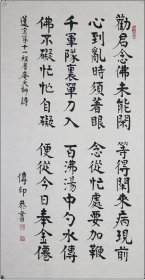 勸君念佛未能閑等得閑來病現前
心到亂時須著眼念從忙處要加鞭
千軍隊裏單刀入百沸湯中勺水傳
佛不礙忙忙自礙便從今日奉金僊
蓮宗第十一祖省庵大師詩
傳印恭書